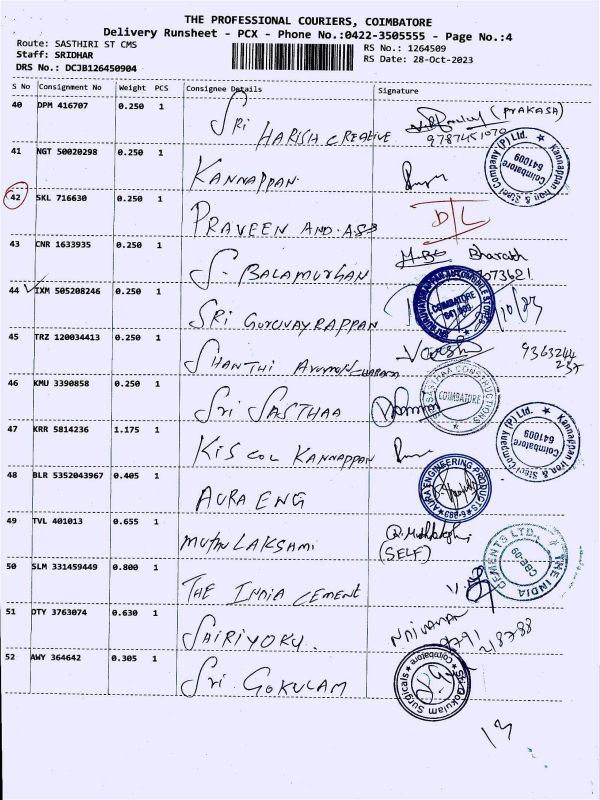 THE PROFESSIONAL COURIERS, COIMBATORE
Delivery Runsheet - PCX - Phone No.:0422-3505555 - Page No.:4
Route: SASTHIRI ST CMS RS No.: 1264509
Staff: SRIDHAR RS Date: 28-Oct-2023
DRS No.: DCJB126450904
S No Consignment No Weight PCS Consignee Details Signature
40 DPM 416707 0.250 1 SRI HARISH CREATIVE (PRAKASA)
9787451070
41 NGT 50020298 0.250 1 KANNAPPAN
Kannappan Iron & Steel Company (P) Ltd. Coimbatore 641009
42 SKL 716630 0.250 1 PRAVEEN AND ASS D/L
43 CNR 1633935 0.250 1 S. BALAMURUGAN Bharath
073621
44 IXM 505208246 0.250 1 SRI GURUVAYRAPPAN /10/23
COIMBATORE 641 009
45 TRZ 120034413 0.250 1 SHANTHI 9363244
237
46 KMU 3390858 0.250 1 SRI SASTHAA
SASTHAA CONSTRUCTIONS COIMBATORE
47 KRR 5814236 1.175 1 KISCOL KANNAPPAN
Kannappan Iron & Steel Company (P) Ltd. Coimbatore 641009
48 BLR 5352043967 0.405 1 AURA ENG
AURA ENGINEERING PRODUCTS CBE-9
49 TVL 401013 0.655 1 MUTHU LAKSAMI
(SELF)
50 SLM 331459449 0.800 1 THE INDIA CEMENT
THE INDIA CEMENTS LTD. CBE-09
51 DTY 3763074 0.630 1 SAIRIYOKU
52 AWY 364642 0.305 1 SRI GOKULAM
Sri Gokulam Surgicals Coimbatore
13